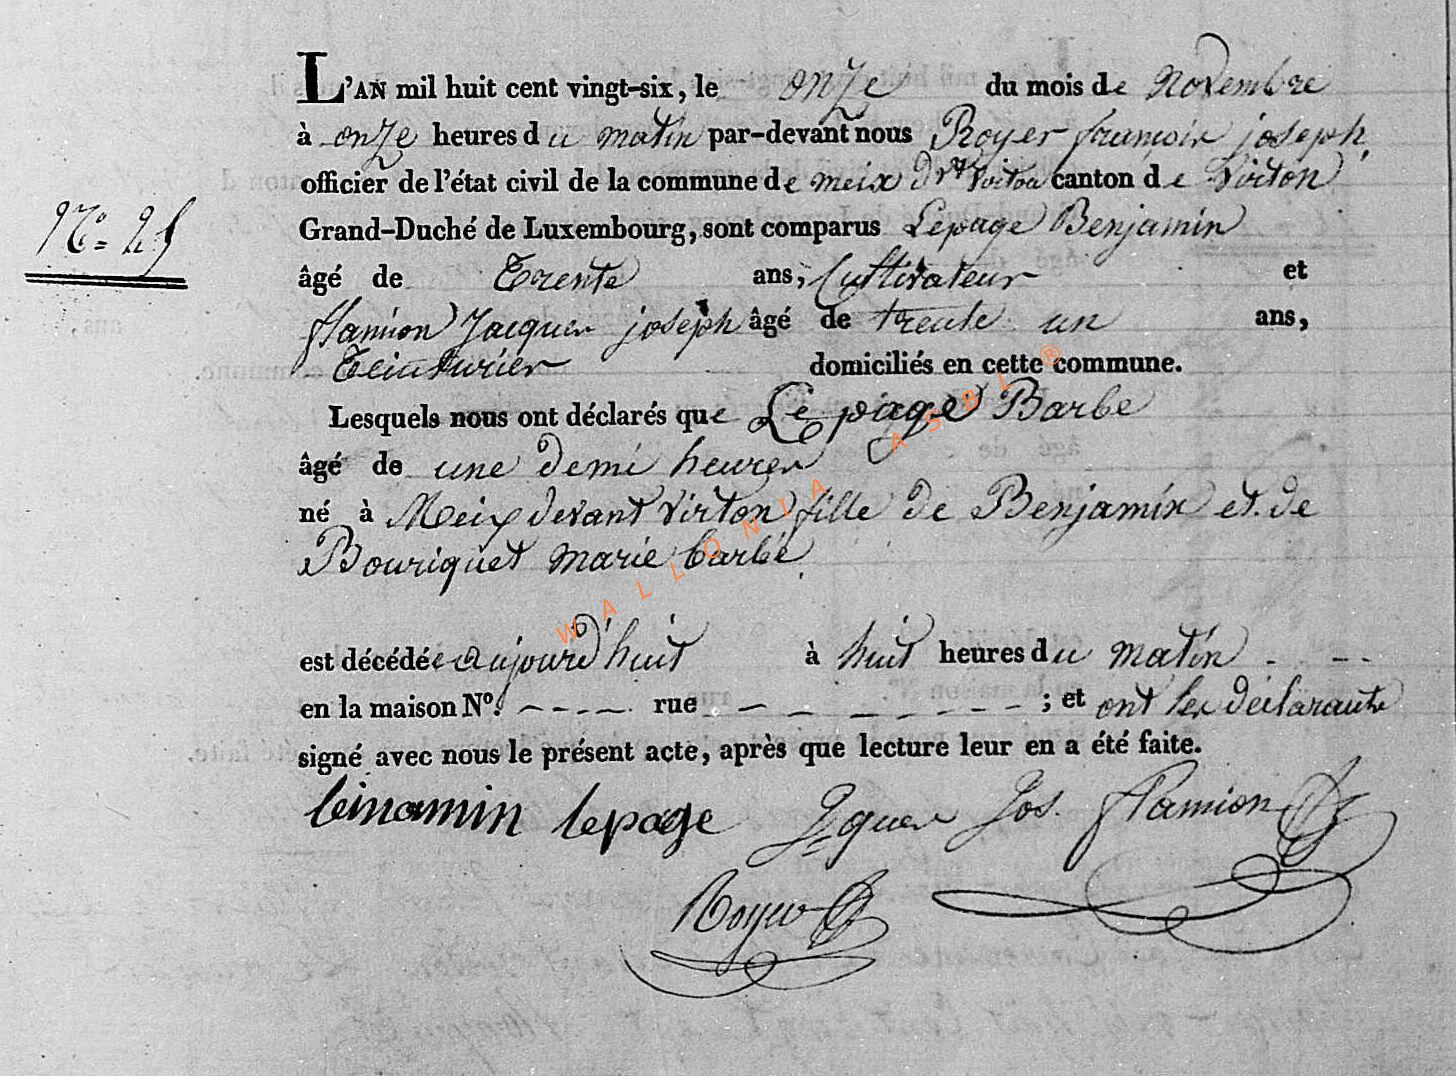 L'AN mil huit cent vingt-six, le onze du mois de Novembre
à onze heures du matin par-devant nous Royer françois joseph,
officier de l'état civil de la commune de meix dvt Virton canton de Virton
N.º 25
Grand-Duché de Luxembourg, sont comparus Lepage Benjamin
âgé de Trente ans, Cultivateur et
flamion Jacques joseph âgé de trente un ans,
Teinturier domiciliés en cette commune.
Lesquels nous ont déclarés que Lepage Barbe
âgé de une demi heures
né à Meix devant Virton fille de Benjamin et de
Bouriquet marie barbe
est décédée aujourd'huit à huit heures du matin . - -
en la maison Nº. - - - - rue - - - - - - - - ; et ont les déclarants
signé avec nous le présent acte, après que lecture leur en a été faite.
beinamin lepage Jques Jos. flamion
Royer
WALLONIA ASBL ®